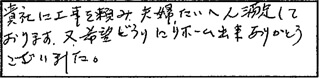 貴社に工事を頼み、夫婦たいへん満足して
おります。又、希望どうりにリホーム出来ありがとう
ございました。